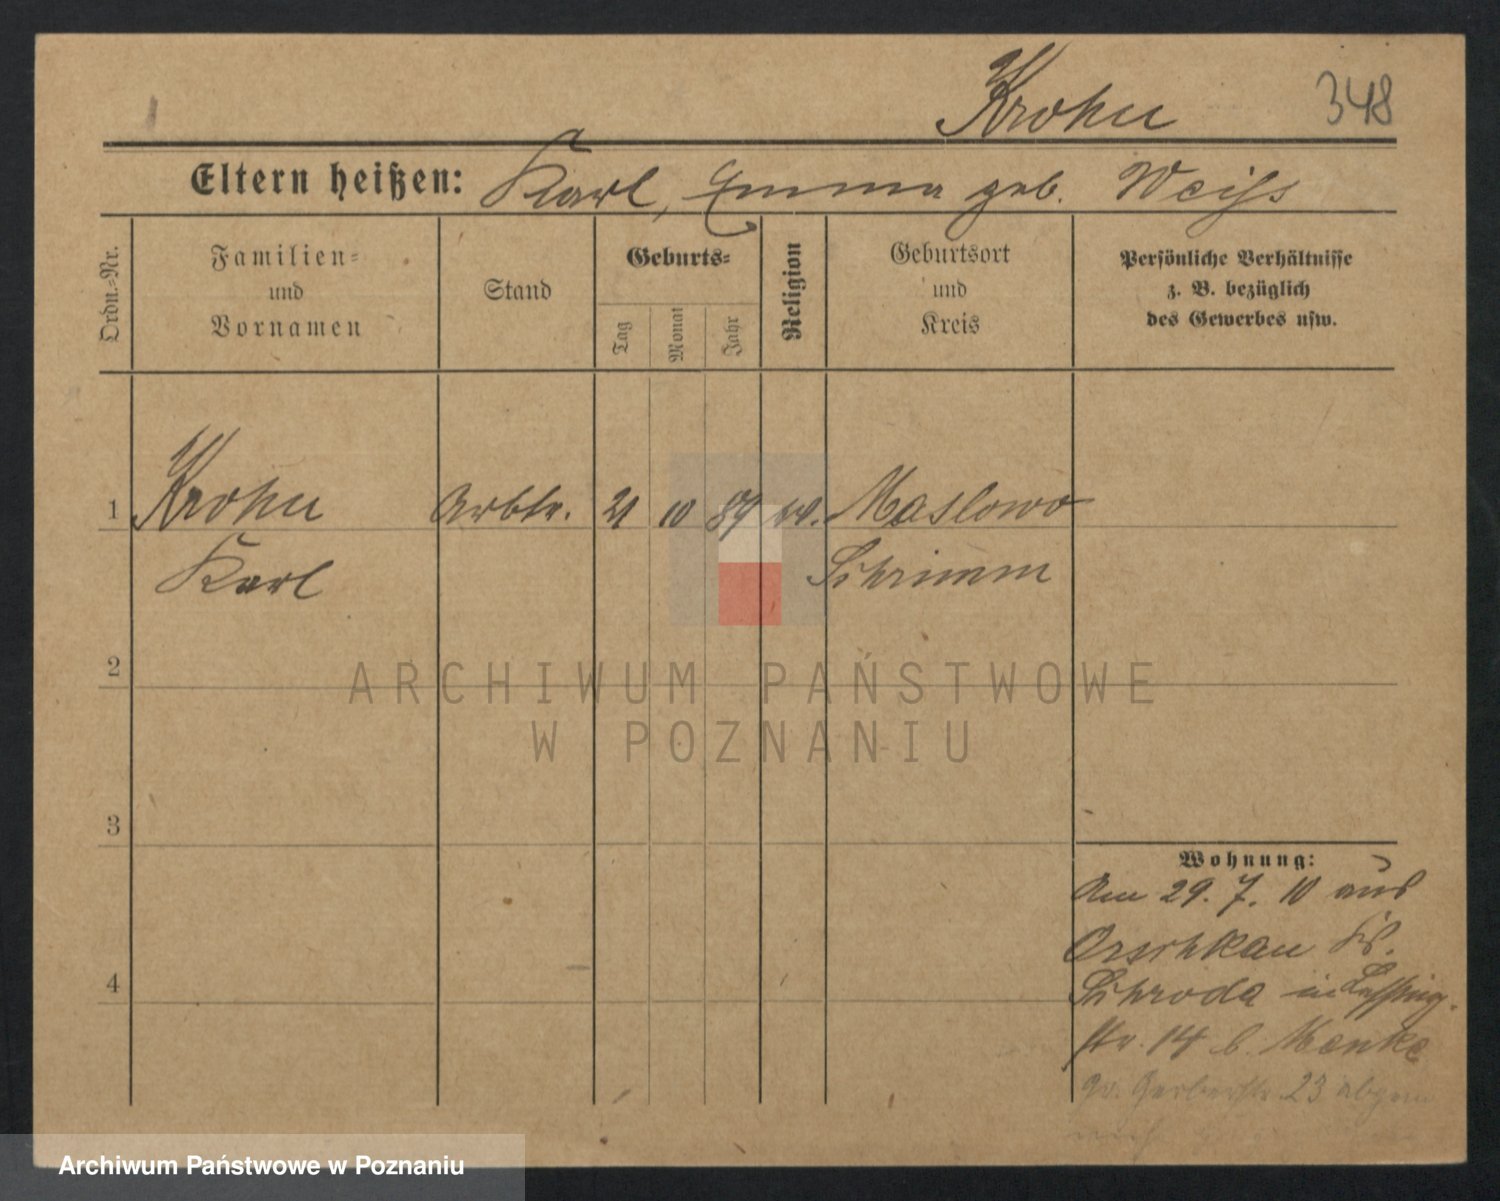 Krohn 348
Eltern heißen: Karl, Emma geb. Weiss
Ordn.-Nr.
Familien-
und
Vornamen
Stand
Geburts-
Tag
Monat
Jahr
Religion
Geburtsort
und
Kreis
Persönliche Verhältnisse
z. B. bezüglich
des Gewerbes usw.
1 Krohn Arbtr. 21 10 89 ev. Maslowo
Karl Schrimm
2
ARCHIWUM PAŃSTWOWE
W POZNANIU
3
Wohnung:
Am 29. 7. 10 aus
Krs.
4
Schroda in Lessing-
str. 14 b. Menke
Gr. Gerberstr. 23
Archiwum Państwowe w Poznaniu